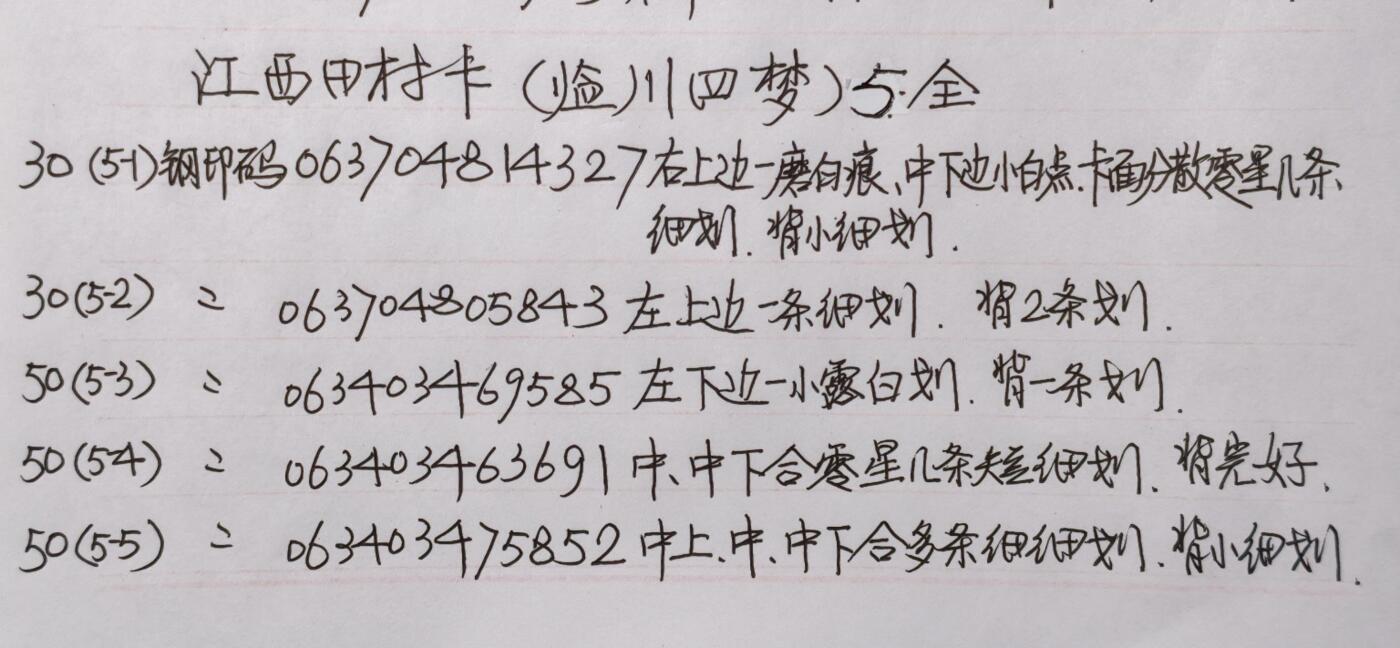 江西田村卡(临川四梦)5全
30(5-1)钢印码063704814327右上边一磨白痕、中下边小白点.卡面分散零星几条
细划.背小细划.
30(5-2) 〃 063704805843左上边一条细划.背2条划.
50(5-3) 〃 063403469585左下边一小露白划.背一条划.
50(5-4) 〃 063403463691中、中下合零星几条短细划.背完好.
50(5-5) 〃 063403475852中上.中.中下合多条细细划.背小细划.